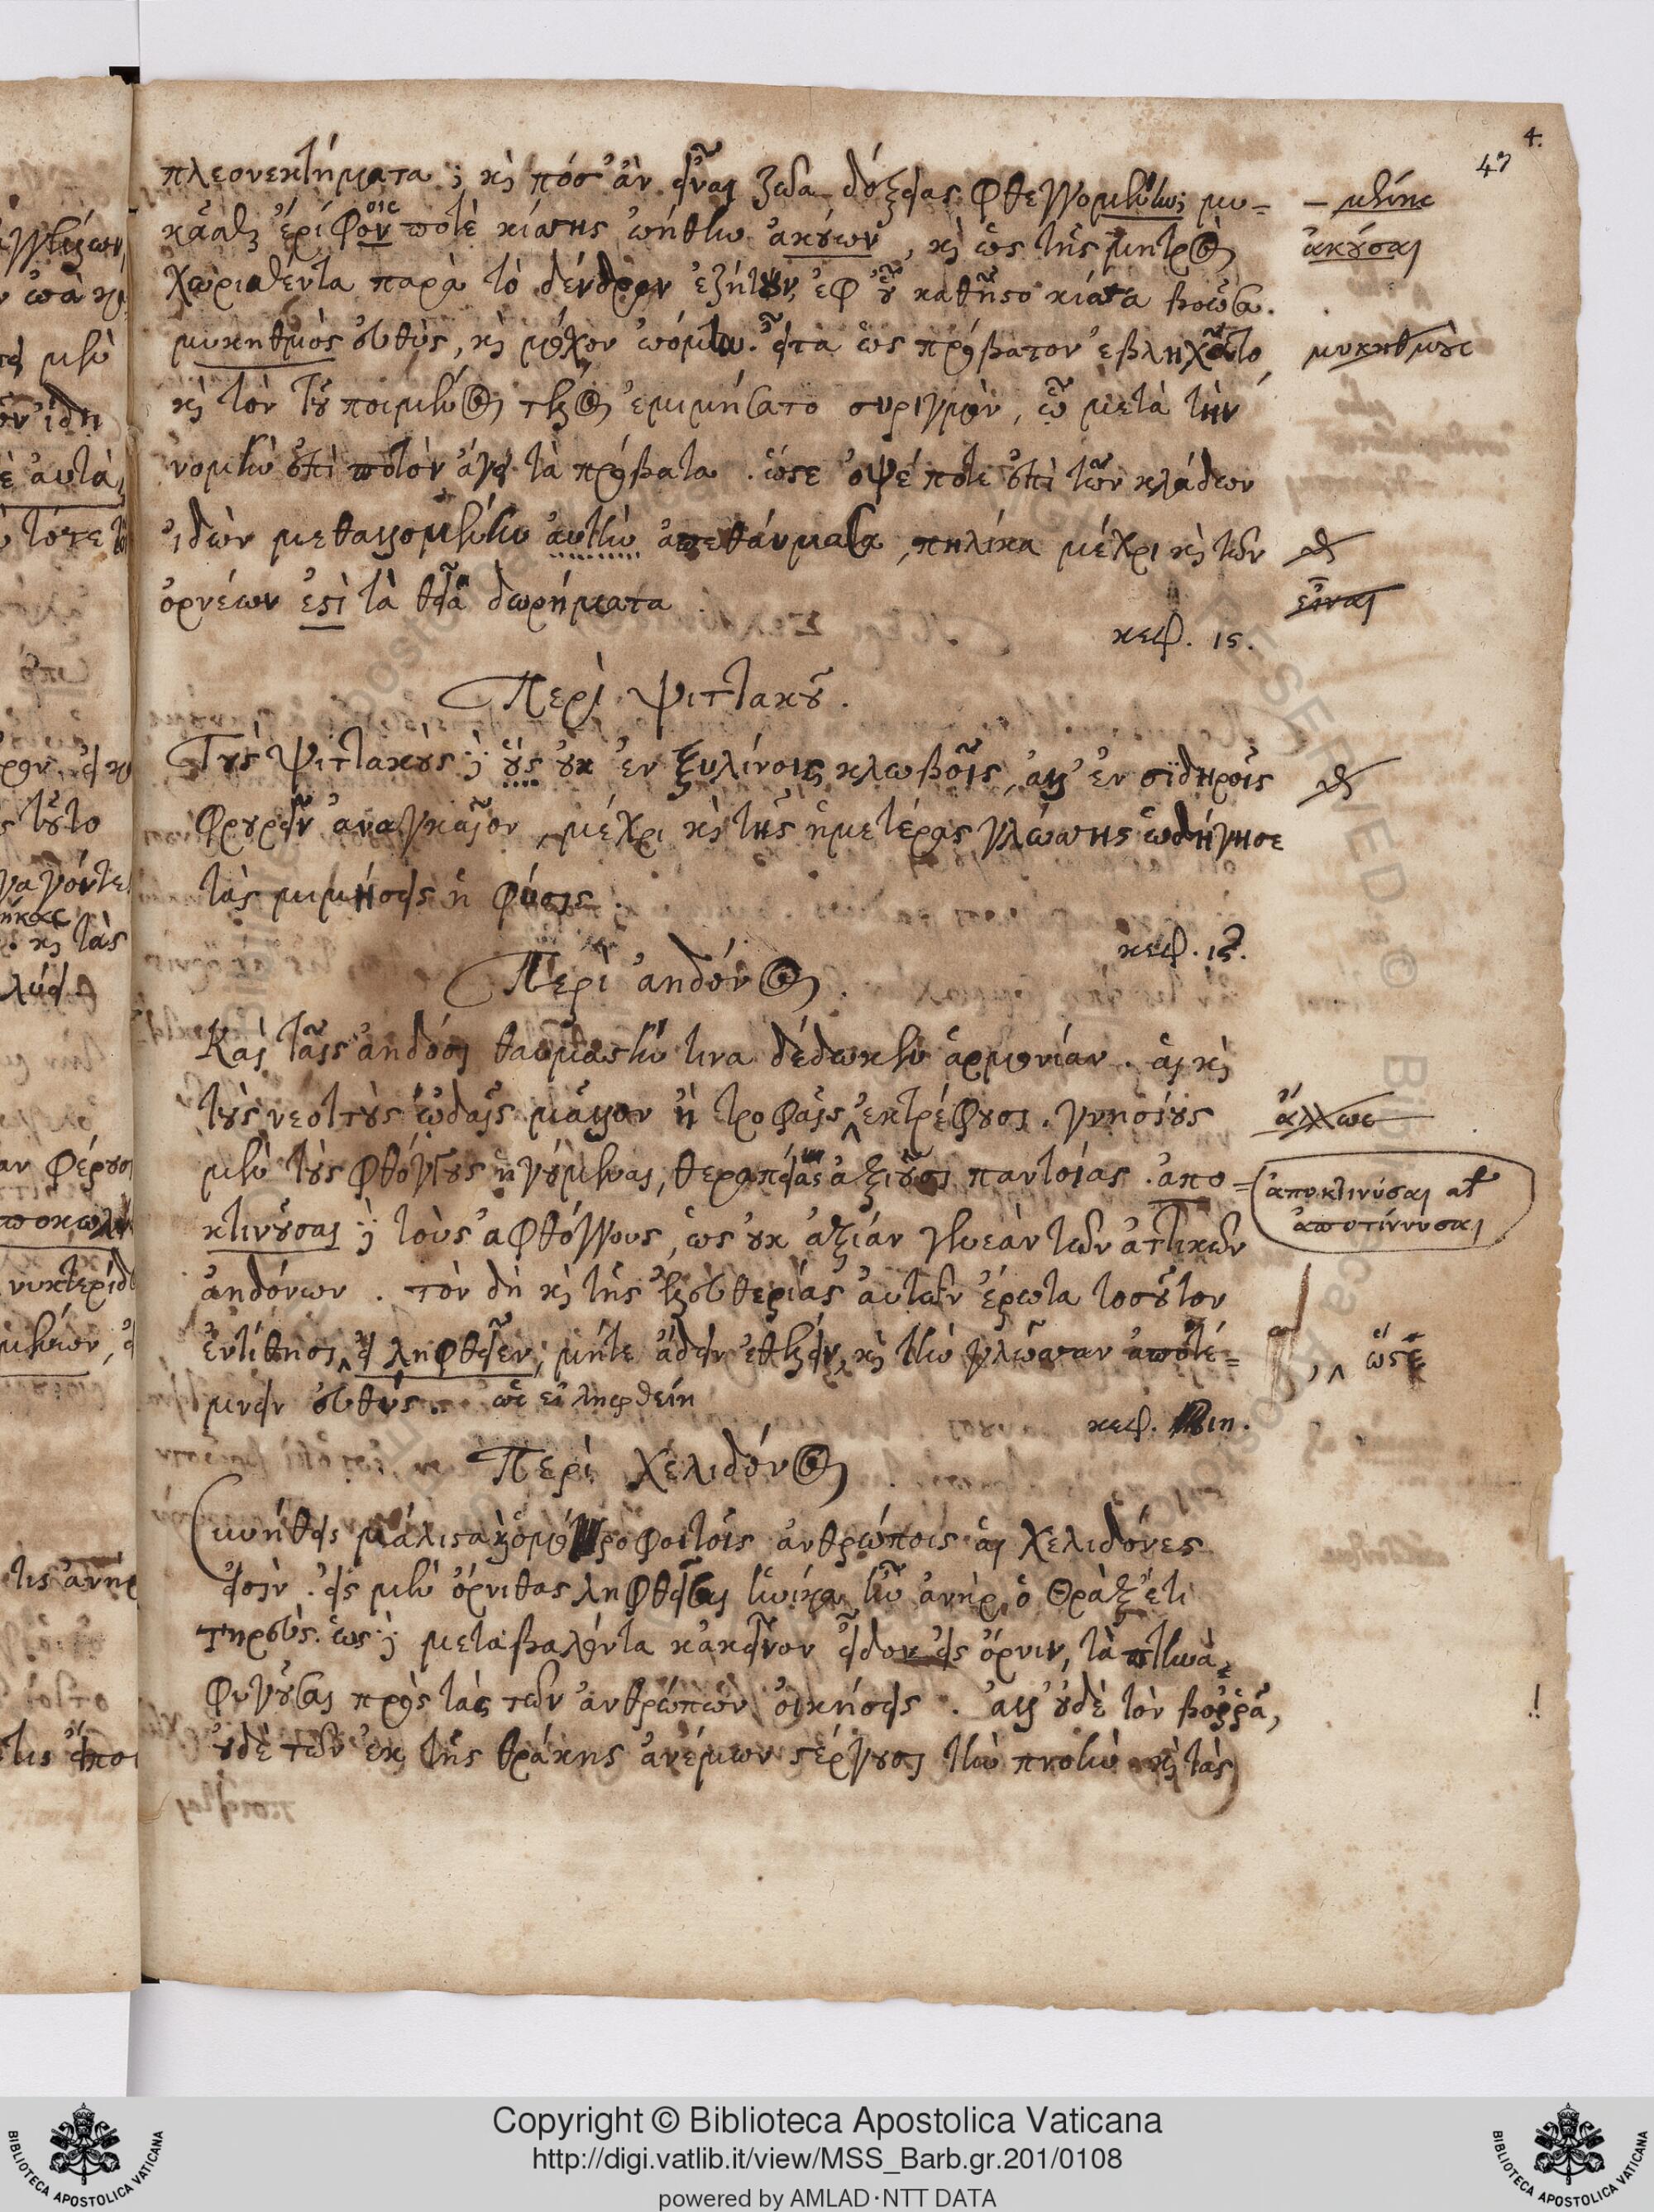 4.
47
πλεονεκτήματα; κὶ πόσ' ἂν εἶναι ζῶα δόξειας φθεγγομένων; μυ=
– μένης
κᾶται ἐρίφον ποτὲ κίττης ᾠήθην ἀκούων, κὶ ὡς τῆς μητρὸς
οις
ἀκούσαι
χωρισθέντα παρὰ τὸ δένδρον ἐζήτουν, ἐφ' οὗ καθῆστο κίττα βοῶσα.
μυκηθμὸς εὐθὺς, κὶ μόσχον ᾠόμην. εἶτα ὡς πρόβατον ἐβληχᾶτο
μυκηθμοὺς
κὶ τὸν τοῦ ποιμένος τέλος ἐμιμήσατο συριγμὸν, ᾧ μετὰ τὴν
νομὴν ἐπὶ ποτὸν ἄγει τὰ πρόβατα. ὥστε ὀψέ ποτε ἐπὶ τῶν κλάδων
ἰδὼν μεθαλλομένην αὐτὴν ἀπεθαύμασα, πηλίκα μέχρι κὶ τῶν
ὀρνέων ἐστὶ τὰ θεῖα δωρήματα.
εἶναι
κεφ. ις.
Περὶ ψιττακοῦ.
Τοὺς ψιττακοὺς; οὓς οὐκ ἐν ξυλίνοις κλωβοῖς, ἀλλ' ἐν σιδηροῖς
φρουρεῖν ἀναγκαῖον, μέχρι κὶ τῆς ἡμετέρας γλώττης ὡδήγησε
τὰς μιμήσεις ἡ φύσις.
κεφ. ιζ.
Περὶ ἀηδόνος.
Καὶ ταῖς ἀηδόσι θαυμαστήν τινα δέδωκεν ἁρμονίαν. αἳ κὶ
τοὺς νεοττοὺς ᾠδαῖς μᾶλλον ἢ τροφαῖς ἐκτρέφουσι. γνησίους
ἄλλως
μὲν τοὺς φθόγγους ἡγούμεναι, θεραπείας ἀξιοῦσι παντοίας. ἀπο=
ἀποκτινύσαι
ἀποτίννυσαι
κτινοῦσαι; τοὺς ἀφθόγγους, ὡς οὐκ ἀξιὰν γενεὰν τῶν ἀττικῶν
ἀηδόνων. τὸν δὴ κὶ τῆς ἐλευθερίας αὐτῶν ἔρωτα τοσοῦτον
ἐντίθησι, εἰ ληφθεῖεν, μήτε ᾄδειν ἐθέλειν, κὶ τὴν γλῶτταν ἀποτέ=
, ^ ὥστε
μνειν εὐθύς. ὡς εἰ ληφθείη
κεφ. ιη.
Περὶ χελιδόνος.
Συνήθεις μάλιστα κὶ ὁμωροφοιτοῖς ἀνθρώποις αἱ χελιδόνες
εἰσίν. εἰς μὲν ὄρνιθας ληφθεῖσαι ἡνίκα ἦν ἀνὴρ ὁ Θρὰξ ἔτι
τηρεύς. ὡς; μεταβαλόντα κἀκεῖνον εἶδον εἰς ὄρνιν, τὰ πτηνὰ
φυγοῦσαι πρὸς τὰς τῶν ἀνθρώπων οἰκήσεις. ἀλλ' οὐδὲ τὸν βοῤῥᾶ,
οὐδὲ τῶν ἐκ τῆς θράκης ἀνέμων στέργουσι τὴν πνοὴν κὶ τὰς
Copyright © Biblioteca Apostolica Vaticana
http://digi.vatlib.it/view/MSS_Barb.gr.201/0108
powered by AMLAD·NTT DATA
BIBLIOTECA APOSTOLICA VATICANA
BIBLIOTECA APOSTOLICA VATICANA